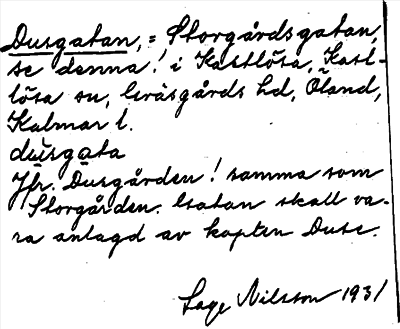 Dusgatan, = Storgårdsgatan,
se denna! i Kastlösa, Kast-
lösa sn, Gräsgårds hd, Öland,
Kalmar l.
dùsgata
Jfr. Dusgården! samma som
Storgården. Gatan skall va-
ra anlagd av kapten Duse.
Lage Nilsson 1931